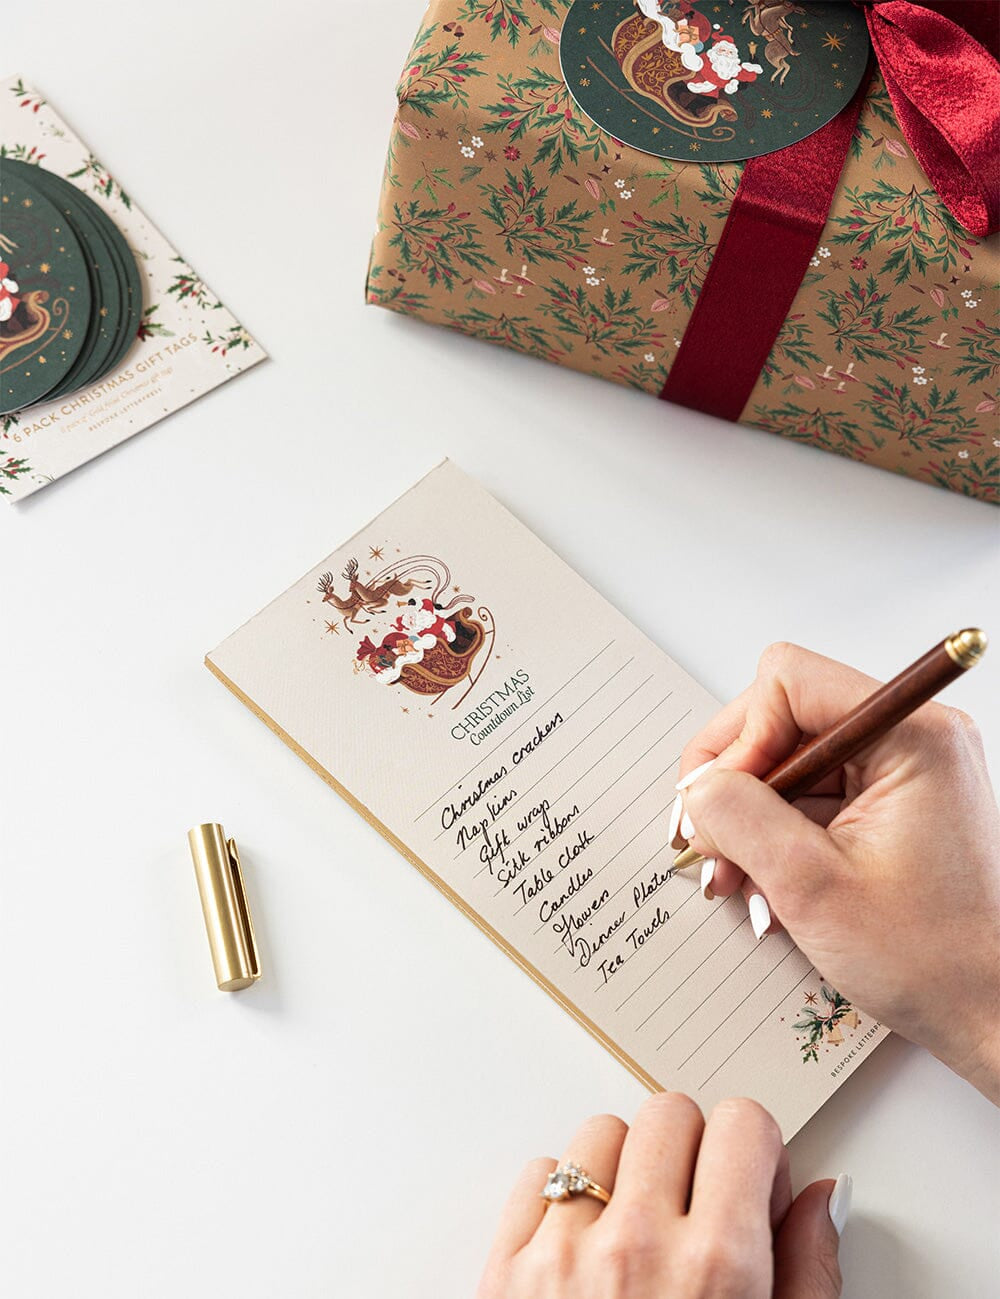 6 PACK CHRISTMAS GIFT TAGS
6 pack x Gold foil Christmas gift tags
BESPOKE LETTERPRESS
CHRISTMAS
Countdown List
Christmas crackers
Napkins
Gift wrap
Silk ribbons
Table cloth
Candles
Flowers
Dinner Plates
Tea Towels
BESPOKE LETTERPR